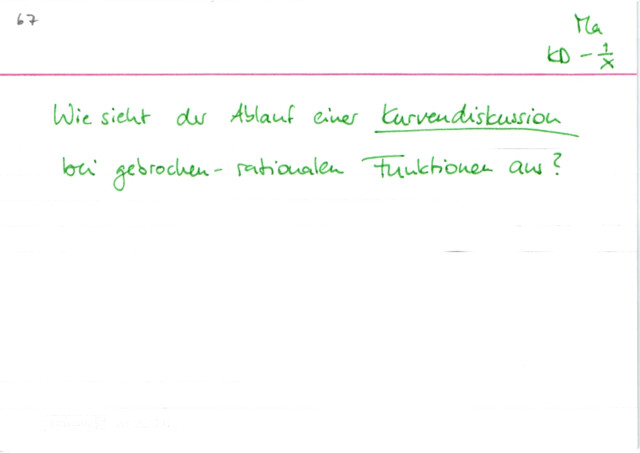 67
Ma
KD - 1/x
Wie sieht der Ablauf einer Kurvendiskussion
bei gebrochen-rationalen Funktionen aus?